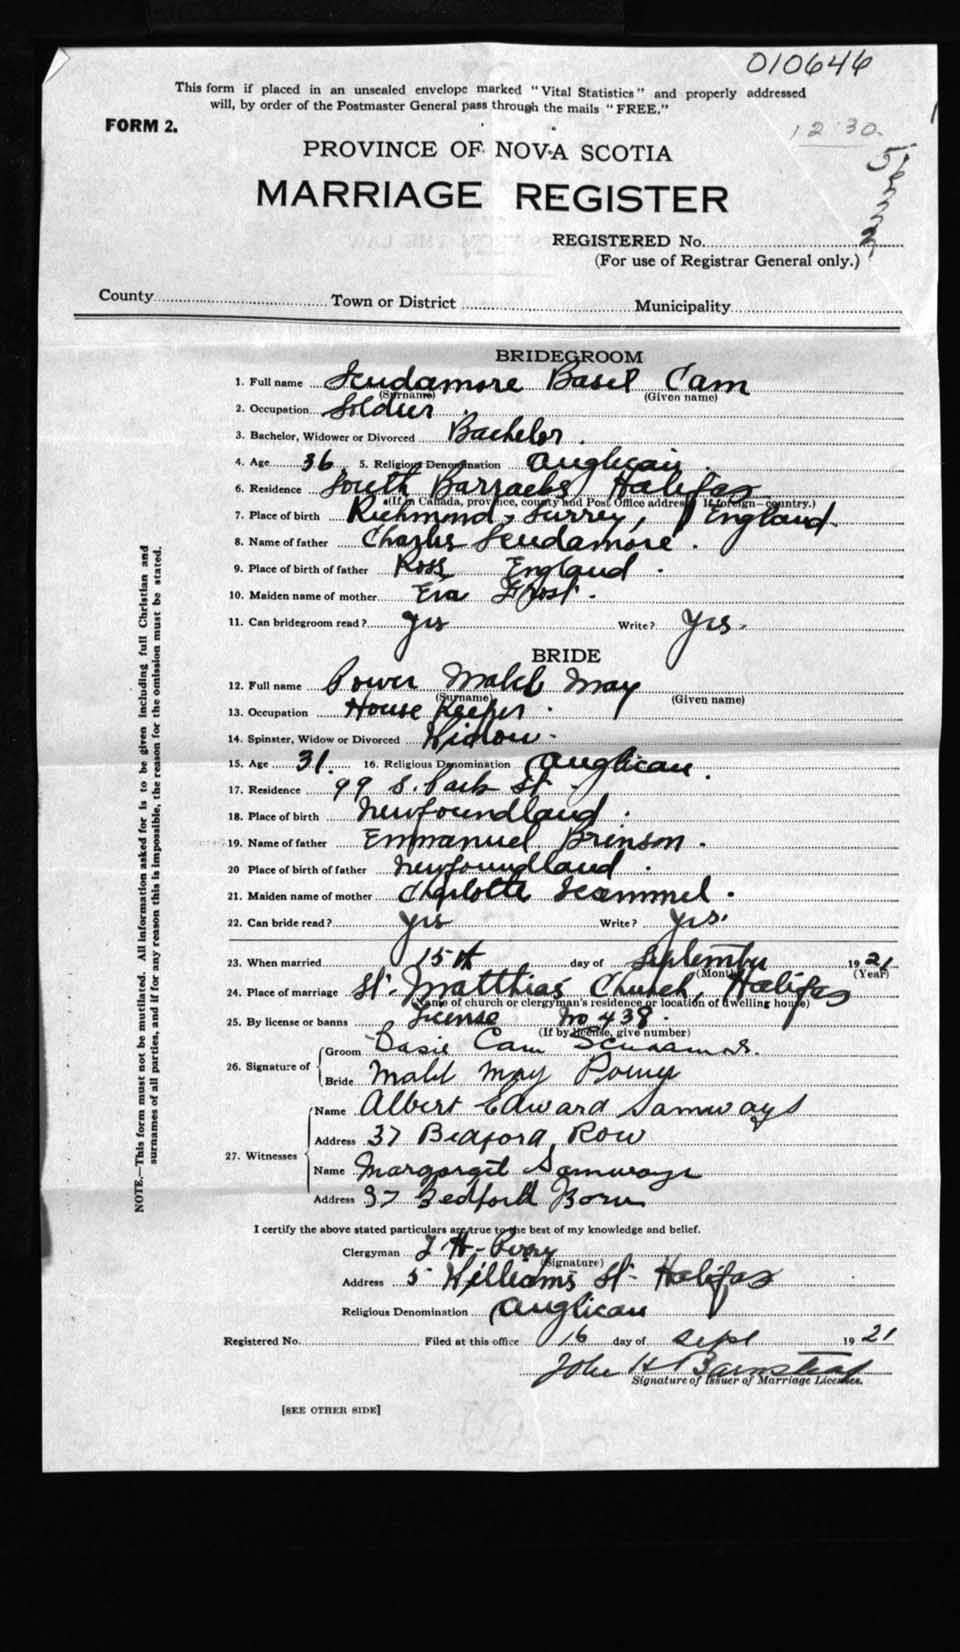 010646
This form if placed in an unsealed envelope marked "Vital Statistics" and properly addressed
will, by order of the Postmaster General pass through the mails "FREE."
FORM 2.
12 30.
PROVINCE OF NOVA SCOTIA
MARRIAGE REGISTER
REGISTERED No.
(For use of Registrar General only.)
County Town or District Municipality
BRIDEGROOM
1. Full name Scudamore Basil Cam
(Surname) (Given name)
2. Occupation Soldier
3. Bachelor, Widower or Divorced Bachelor.
4. Age 36 5. Religious Denomination Anglican.
6. Residence South Barracks Halifax
(If in Canada, province, county and Post Office address. If foreign—country.)
7. Place of birth Richmond, Surrey, England.
8. Name of father Charles Scudamore.
9. Place of birth of father Ross England.
10. Maiden name of mother Eva Frost.
11. Can bridegroom read? Yes Write? Yes.
BRIDE
12. Full name Power Mabel May
(Surname) (Given name)
13. Occupation House Keeper.
14. Spinster, Widow or Divorced Widow.
15. Age 31. 16. Religious Denomination Anglican.
17. Residence 99 S. Park St.
18. Place of birth Newfoundland.
19. Name of father Emmanuel Brinson.
20 Place of birth of father Newfoundland.
21. Maiden name of mother Charlotte Scammel.
22. Can bride read? Yes Write? Yes.
23. When married 15th day of September 1921
(Month) (Year)
24. Place of marriage St. Matthias Church, Halifax
(Name of church or clergyman's residence or location of dwelling house)
25. By license or banns License No 438.
(If by license, give number)
26. Signature of Groom Basil Cam Scudamore.
Bride Mabel May Power
27. Witnesses Name Albert Edward Samways
Address 37 Bedford Row
Name Margaret Samways
Address 37 Bedford Row
I certify the above stated particulars are true to the best of my knowledge and belief.
Clergyman T. H. Perry
(Signature)
Address 5 Williams St. Halifax
Religious Denomination Anglican
Registered No. Filed at this office 16 day of Sept 1921
John H Barnstead
Signature of Issuer of Marriage Licenses.
[SEE OTHER SIDE]
NOTE.—This form must not be mutilated. All information asked for is to be given including full Christian and
surnames of all parties, and if for any reason this is impossible, the reason for the omission must be stated.